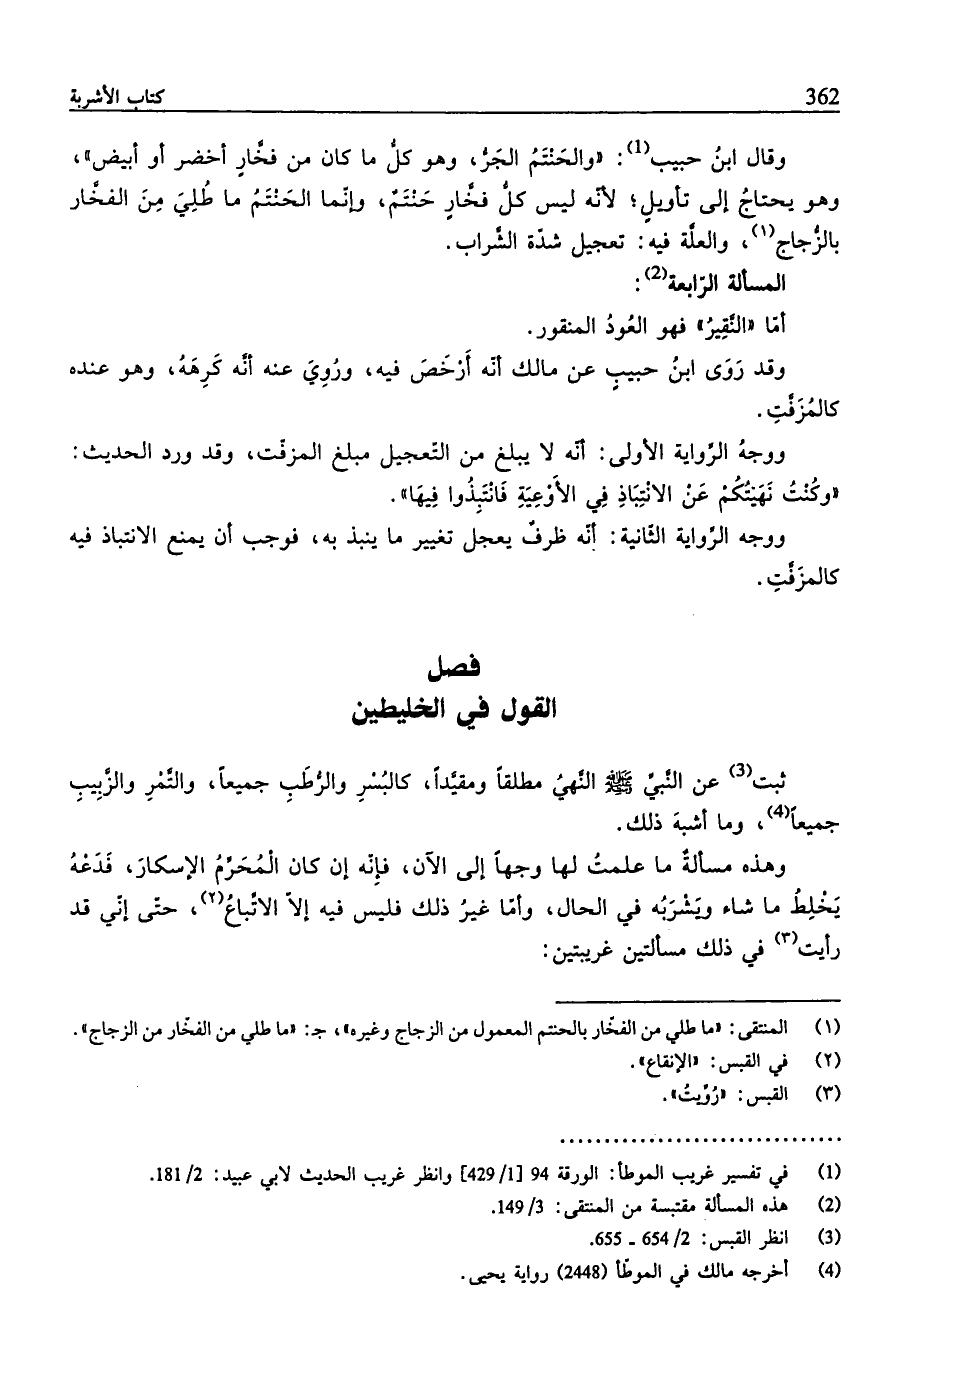 362 كتاب الأشربة
وقال ابنُ حبيب(1): «والحَنْتَمُ الجَرُّ، وهو كلُّ ما كان من فخَّارٍ أخضر أو أبيض»،
وهو يحتاجُ إلى تأويلٍ؛ لأنّه ليس كلُّ فخَّارٍ حَنْتَمٌ، وإنّما الحَنْتَمُ ما طُلِيَ مِنَ الفخَّار
بالزُّجاج(١)، والعلَّة فيه: تعجيل شدّة الشَّراب.
المسألة الرّابعة(2):
أمّا «النَّقِيرُ» فهو العُودُ المنقور.
وقد رَوَى ابنُ حبيبٍ عن مالك أنّه أَرْخَصَ فيه، ورُوِيَ عنه أنَّه كَرِهَهُ، وهو عنده
كالمُزَفَّتِ.
ووجهُ الرِّواية الأولى: أنّه لا يبلغ من التّعجيل مبلغ المزفّت، وقد ورد الحديث:
«وكُنْتُ نَهَيْتُكُمْ عَنْ الانْتِبَاذِ فِي الأَوْعِيَةِ فَانْتَبِذُوا فِيهَا».
ووجه الرِّواية الثّانية: أنّه ظرفٌ يعجل تغيير ما ينبذ به، فوجب أن يمنع الانتباذ فيه
كالمزَفَّتِ.
فصل
القول في الخليطين
ثبت(3) عن النَّبيِّ ﷺ النَّهيُ مطلقاً ومقيَّداً، كالبُسْرِ والرُّطَبِ جميعاً، والتَّمْرِ والزَّبِيبِ
جميعاً(4)، وما أشبهَ ذلك.
وهذه مسألةٌ ما علمتُ لها وجهاً إلى الآن، فإنّه إن كان الْمُحَرَّمُ الإسكارَ، فَدَعْهُ
يَخْلِطُ ما شاء ويَشْرَبُه في الحال، وأمّا غيرُ ذلك فليس فيه إلاّ الاتّباعُ(٢)، حتّى إنّي قد
رأيت(٣) في ذلك مسألتين غريبتين:
(١) المنتقى: «ما طلي من الفخّار بالحنتم المعمول من الزجاج وغيره»، جـ: «ما طلي من الفخّار من الزجاج».
(٢) في القبس: «الإنقاع».
(٣) القبس: «رُوِّيتُ».
................................
(1) في تفسير غريب الموطأ: الورقة 94 [1/ 429] وانظر غريب الحديث لابي عبيد: 2/ 181.
(2) هذه المسألة مقتبسة من المنتقى: 3/ 149.
(3) انظر القبس: 2/ 654 ـ 655.
(4) أخرجه مالك في الموطّأ (2448) رواية يحيى.